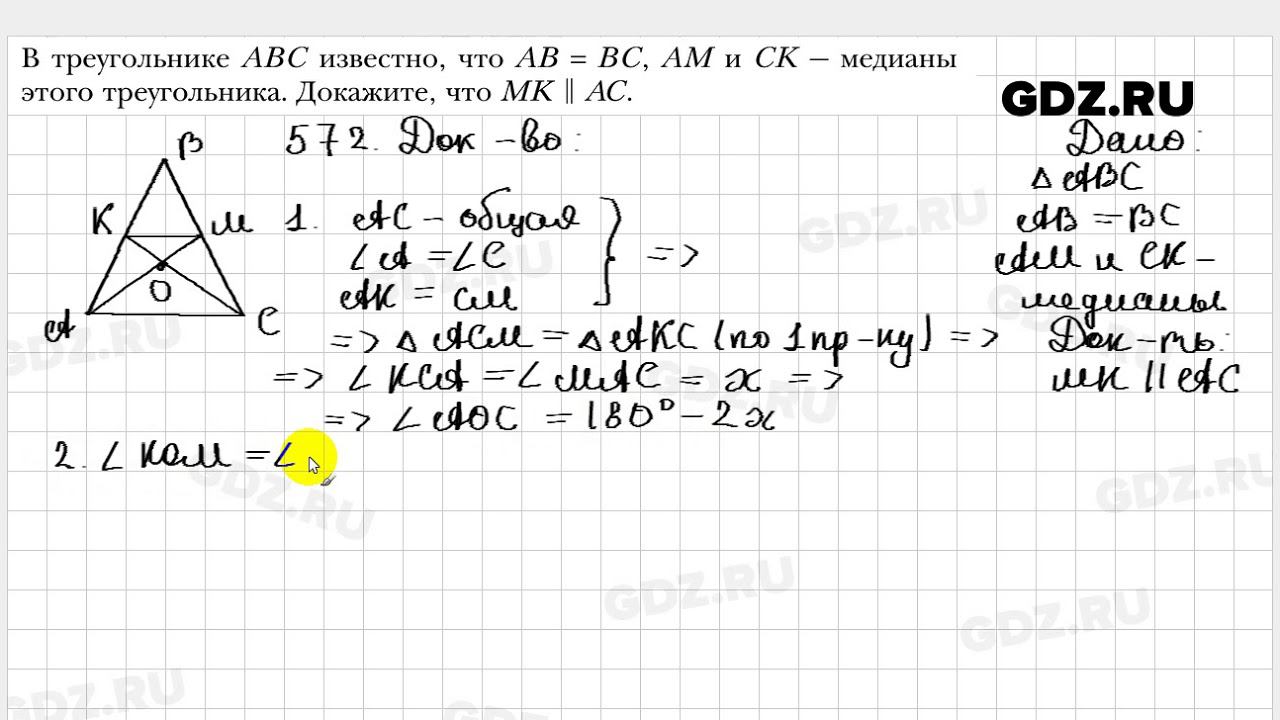 В треугольнике ABC известно, что AB = BC, AM и CK – медианы
этого треугольника. Докажите, что MK ∥ AC.
GDZ.RU
572. Док-во:
1. AC – общая
∠A = ∠C
AK = CM
} =>
=> △ ACM = △ AKC (по 1 пр-ку) =>
=> ∠ KCA = ∠ MAC = x =>
=> ∠ AOC = 180° – 2x
2. ∠ KOM = ∠
B
K
M
O
A
C
Дано:
△ ABC
AB = BC
AM и CK –
медианы
Док-ть:
MK || AC
GDZ.RU
GDZ.RU
GDZ.RU
GDZ.RU
GDZ.RU
GDZ.RU
GDZ.RU
GDZ.RU
GDZ.RU
GDZ.RU
GDZ.RU